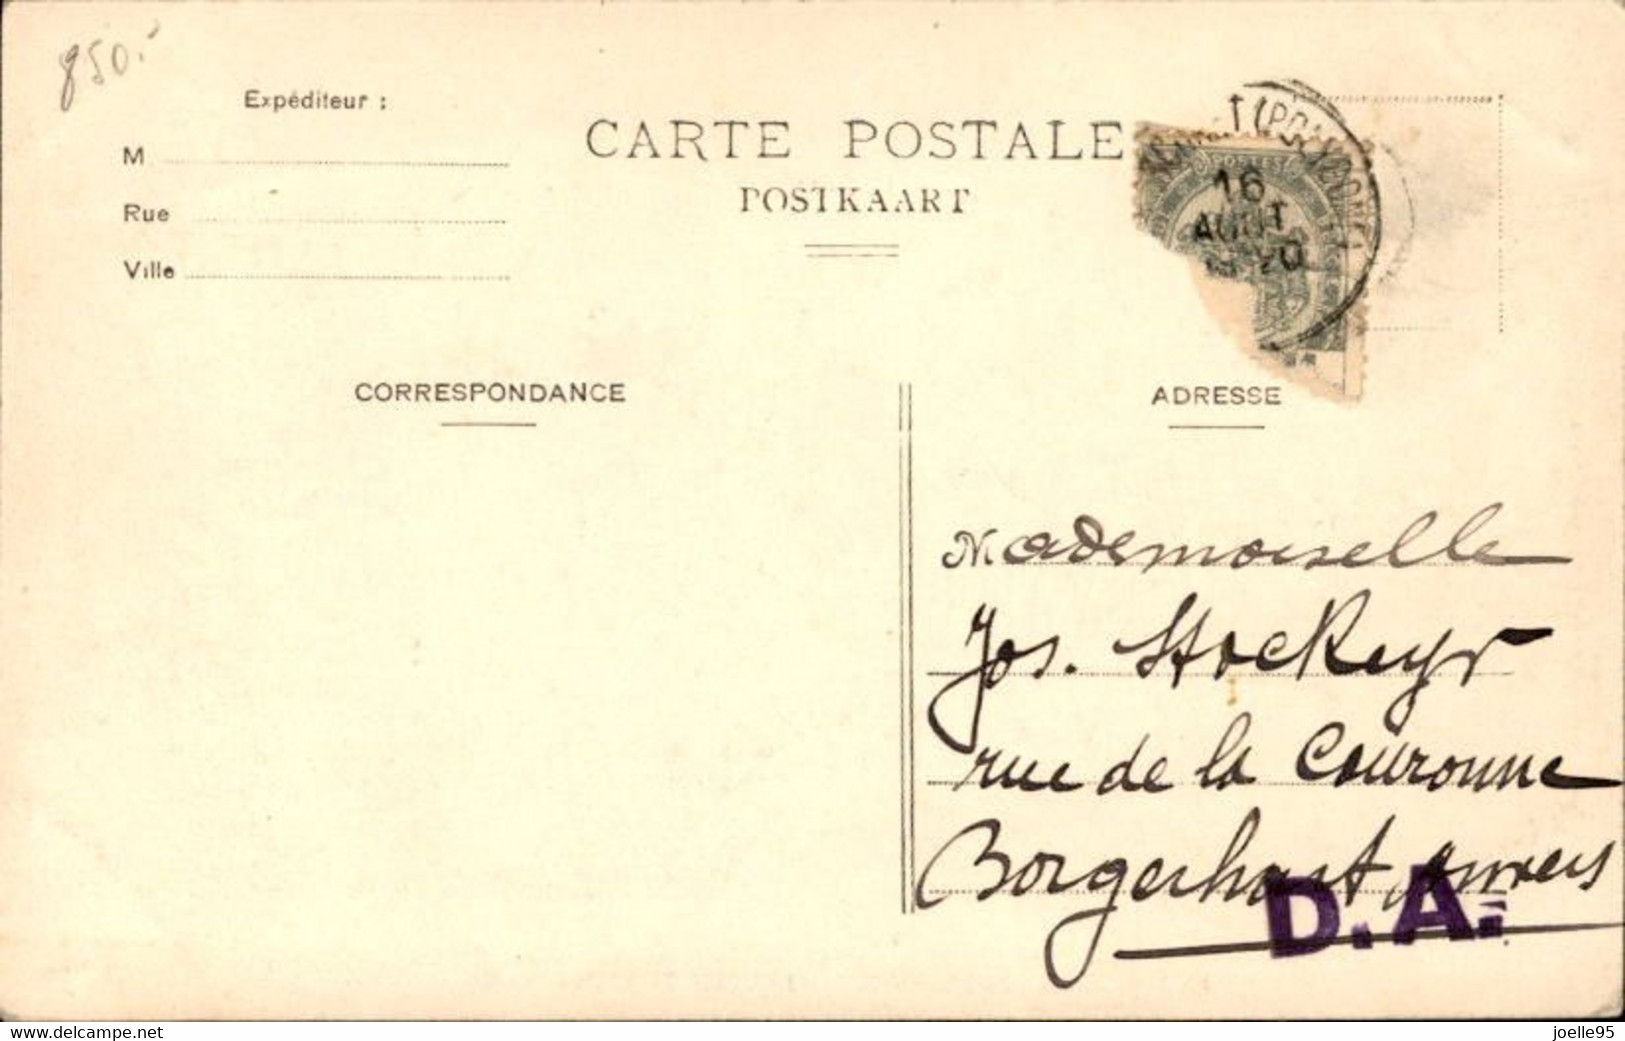 850.-
Expéditeur :
M
Rue
Ville
CARTE POSTALE
POSTKAART
POSTES
16
AOUT
CORRESPONDANCE
ADRESSE
Mademoiselle
Jos. Stockeyr
rue de la Couronne
Borgerhout Anvers
D.A.
www.delcampe.net
joelle95